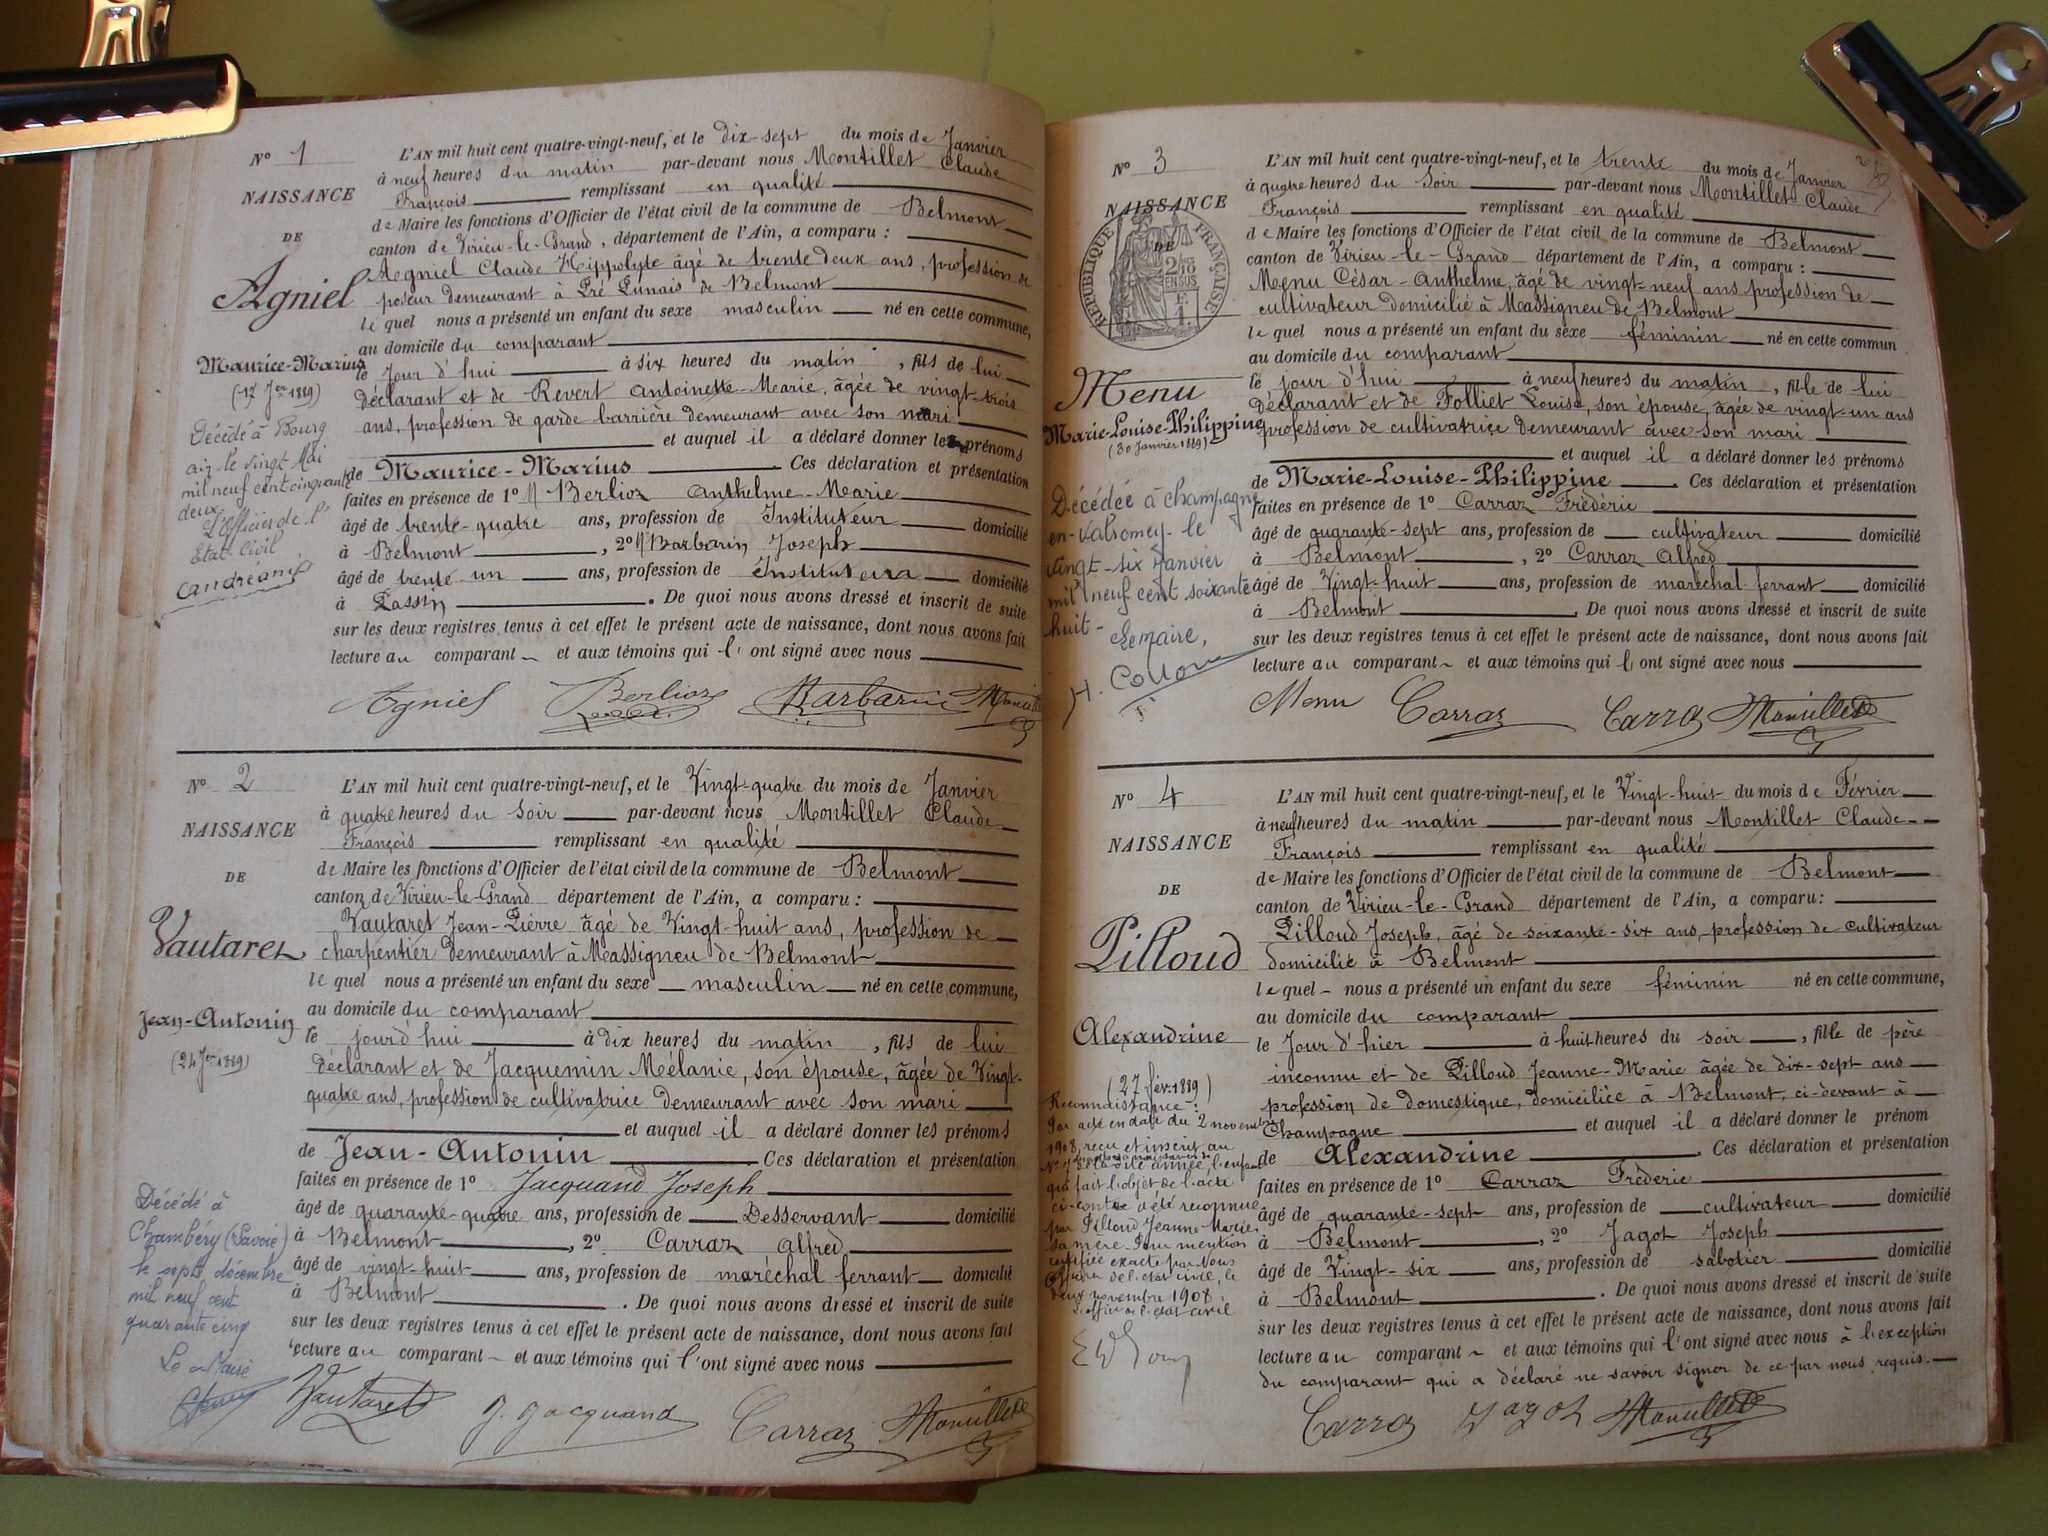 N° 1
NAISSANCE
DE
Agniel
Maurice-Marius
(17 Jer 1889)
Décédé à Bourg
le vingt Mai
mil neuf cent cinquante
deux
L'Officier de l'
Etat-Civil
L'AN mil huit cent quatre-vingt-neuf, et le dix-sept du mois de Janvier
à neuf heures du matin par-devant nous Montillet Claude
François remplissant en qualité
de Maire les fonctions d'Officier de l'état civil de la commune de Belmont
canton de Virieu-le-Grand, département de l'Ain, a comparu :
Agniel Claude Hippolyte âgé de trente deux ans, profession de
poseur demeurant à Pré Lunais de Belmont
le quel nous a présenté un enfant du sexe masculin né en cette commune,
au domicile du comparant
le Jour d'hui à six heures du matin, fils de lui
déclarant et de Revert Antoinette-Marie, âgée de vingt-trois
ans, profession de garde barrière demeurant avec son mari
et auquel il a déclaré donner les prénoms
de Maurice-Marius. Ces déclaration et présentation
faites en présence de 1° Berlioz Anthelme-Marie
âgé de trente-quatre ans, profession de Instituteur domicilié
à Belmont, 2° Barbarin Joseph
âgé de trente un ans, profession de Instituteur domicilié
à Lassin. De quoi nous avons dressé et inscrit de suite
sur les deux registres tenus à cet effet le présent acte de naissance, dont nous avons fait
lecture au comparant et aux témoins qui l'ont signé avec nous
Agniel Berlioz Barbarin Montillet
N° 2
NAISSANCE
DE
Vautaret
Jean-Antonin
(24 Jer 1889)
Décédé à
Chambéry (Savoie)
le sept décembre
mil neuf cent
quarante cinq
Le Maire
L'AN mil huit cent quatre-vingt-neuf, et le Vingt-quatre du mois de Janvier
à quatre heures du soir par-devant nous Montillet Claude
François remplissant en qualité
de Maire les fonctions d'Officier de l'état civil de la commune de Belmont
canton de Virieu-le-Grand département de l'Ain, a comparu :
Vautaret Jean-Pierre âgé de Vingt-huit ans, profession de
charpentier demeurant à Massigneu de Belmont
le quel nous a présenté un enfant du sexe masculin né en cette commune,
au domicile du comparant
le jourd'hui à dix heures du matin, fils de lui
déclarant et de Jacquemin Mélanie, son épouse, âgée de Vingt-
quatre ans, profession de cultivatrice demeurant avec son mari
et auquel il a déclaré donner les prénoms
de Jean-Antonin Ces déclaration et présentation
faites en présence de 1° Jacquand Joseph
âgé de quarante-quatre ans, profession de Desservant domicilié
à Belmont, 2° Carraz Alfred
âgé de vingt-huit ans, profession de maréchal ferrant domicilié
à Belmont. De quoi nous avons dressé et inscrit de suite
sur les deux registres tenus à cet effet le présent acte de naissance, dont nous avons fait
lecture au comparant et aux témoins qui l'ont signé avec nous
Vautaret J. Jacquand Carraz Montillet
N° 3
NAISSANCE
DE
REPUBLIQUE FRANÇAISE
2/10 EN SUS
Menu
Marie-Louise-Philippine
(30 Janvier 1889)
Décédée à Champagne
en-Valromey le
vingt-six Janvier
mil neuf cent soixante
huit-
Le maire,
L'AN mil huit cent quatre-vingt-neuf, et le trente du mois de Janvier
à quatre heures du soir par-devant nous Montillet Claude
François remplissant en qualité
de Maire les fonctions d'Officier de l'état civil de la commune de Belmont
canton de Virieu-le-Grand département de l'Ain, a comparu :
Menu César-Anthelme, âgé de vingt-neuf ans profession de
cultivateur domicilié à Massigneu de Belmont
le quel nous a présenté un enfant du sexe féminin né en cette commun
au domicile du comparant
le jour d'hui à neuf heures du matin, fille de lui
déclarant et de Folliet Louise, son épouse, âgée de vingt-un ans
profession de cultivatrice demeurant avec son mari
et auquel il a déclaré donner les prénoms
de Marie-Louise-Philippine. Ces déclaration et présentation
faites en présence de 1° Carraz Frédéric
âgé de quarante-sept ans, profession de cultivateur domicilié
à Belmont, 2° Carraz Alfred
âgé de Vingt-huit ans, profession de maréchal ferrant domicilié
à Belmont. De quoi nous avons dressé et inscrit de suite
sur les deux registres tenus à cet effet le présent acte de naissance, dont nous avons fait
lecture au comparant et aux témoins qui l'ont signé avec nous
Menu Carraz Carraz Montillet
N° 4
NAISSANCE
DE
Pilloud
Alexandrine
(27 fév. 1889)
Reconnaissance :
Par acte en date du 2 novembre
1908, reçu et inscrit au
de la dite année, l'enfant
qui fait l'objet de l'acte
ci-contre a été reconnue
par Pilloud Jeanne-Marie
sa mère. Pour mention
certifiée exacte par Nous
Officier de l'état civil, le
deux novembre 1908.
L'officier de l'état civil
L'AN mil huit cent quatre-vingt-neuf, et le Vingt-huit du mois de Février
à neuf heures du matin par-devant nous Montillet Claude
François remplissant en qualité
de Maire les fonctions d'Officier de l'état civil de la commune de Belmont
canton de Virieu-le-Grand département de l'Ain, a comparu :
Pilloud Joseph, âgé de soixante-six ans, profession de cultivateur
domicilié à Belmont
le quel nous a présenté un enfant du sexe féminin né en cette commune,
au domicile du comparant
le Jour d'hier à huit heures du soir, fille de père
inconnu et de Pilloud Jeanne-Marie âgée de dix-sept ans
profession de domestique, domiciliée à Belmont, ci-devant à
Champagne et auquel il a déclaré donner le prénom
de Alexandrine. Ces déclaration et présentation
faites en présence de 1° Carraz Fréderic
âgé de quarante-sept ans, profession de cultivateur domicilié
à Belmont, 2° Jagot Joseph
âgé de Vingt-six ans, profession de sabotier domicilié
à Belmont. De quoi nous avons dressé et inscrit de suite
sur les deux registres tenus à cet effet le présent acte de naissance, dont nous avons fait
lecture au comparant et aux témoins qui l'ont signé avec nous à l'exception
du comparant qui a déclaré ne savoir signer de ce par nous requis.
Carraz Jagot Montillet